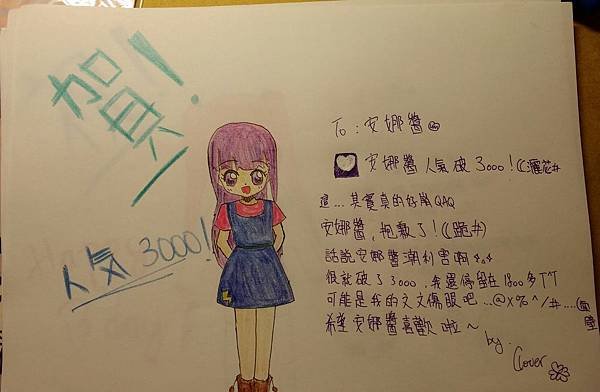 賀!
人氣 3000!
To:安娜醬
安娜醬人氣破3000!((灑花#
這...其實真的好崩QAQ
安娜醬,抱歉了!((跪#)
話說安娜醬潮利害啊
很就破了3000,我還停留在1800多TT
可能是我的文文傷眼吧...@X%^/#....
希望安娜醬喜歡啦~
by.
Clover